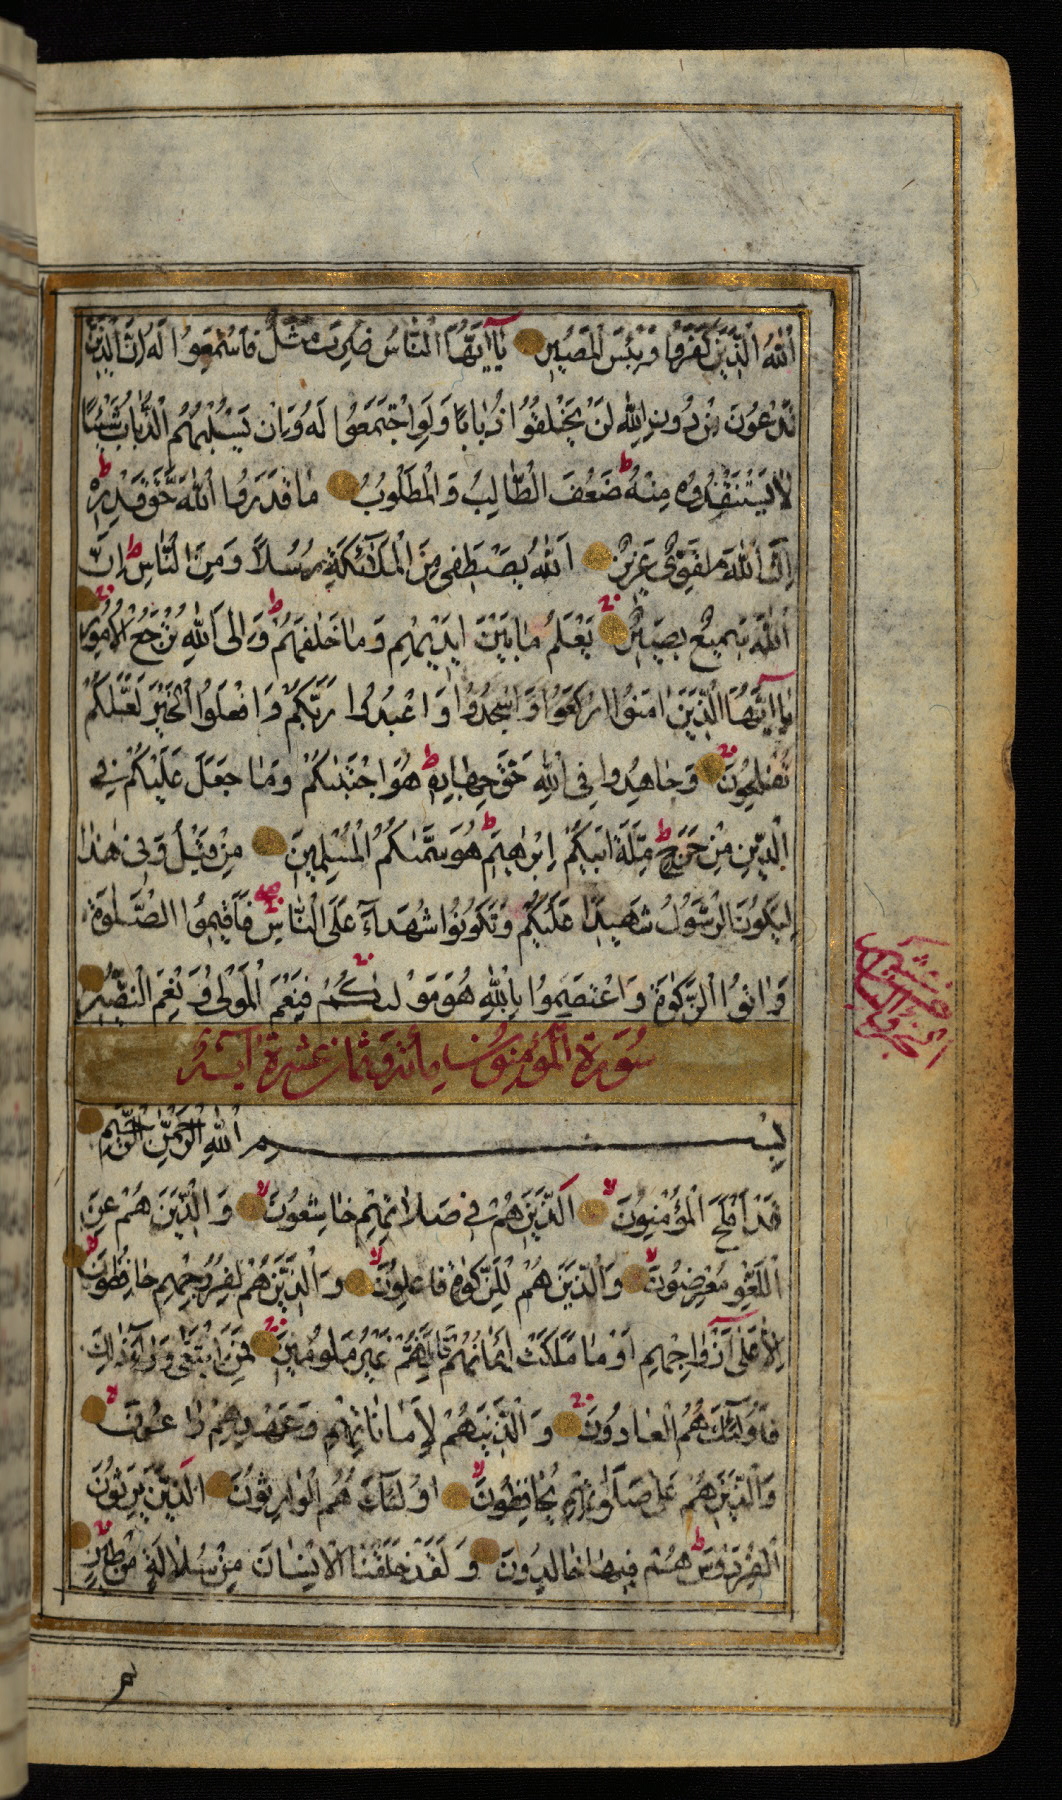 اللهُ الَّذِينَ كَفَرُوا وَبِئْسَ الْمَصِيرُ يَا أَيُّهَا النَّاسُ ضُرِبَ مَثَلٌ فَاسْتَمِعُوا لَهُ إِنَّ الَّذِينَ
تَدْعُونَ مِنْ دُونِ اللهِ لَنْ يَخْلُقُوا ذُبَابًا وَلَوِ اجْتَمَعُوا لَهُ وَإِنْ يَسْلُبْهُمُ الذُّبَابُ شَيْئًا
لَا يَسْتَنْقِذُوهُ مِنْهُ ط ضَعُفَ الطَّالِبُ وَالْمَطْلُوبُ مَا قَدَرُوا اللهَ حَقَّ قَدْرِهِ ط
إِنَّ اللهَ لَقَوِيٌّ عَزِيزٌ اَللهُ يَصْطَفِي مِنَ الْمَلَائِكَةِ رُسُلًا وَمِنَ النَّاسِ ط إِنَّ
اللهَ سَمِيعٌ بَصِيرٌ يَعْلَمُ مَا بَيْنَ أَيْدِيهِمْ وَمَا خَلْفَهُمْ ط وَإِلَى اللهِ تُرْجَعُ الْأُمُورُ
يَا أَيُّهَا الَّذِينَ اٰمَنُوا ارْكَعُوا وَاسْجُدُوا وَاعْبُدُوا رَبَّكُمْ وَافْعَلُوا الْخَيْرَ لَعَلَّكُمْ
تُفْلِحُونَ وَجَاهِدُوا فِي اللهِ حَقَّ جِهَادِهِ ط هُوَ اجْتَبٰىكُمْ وَمَا جَعَلَ عَلَيْكُمْ فِي
الدِّينِ مِنْ حَرَجٍ ط مِلَّةَ أَبِيكُمْ إِبْرٰهِيمَ ط هُوَ سَمّٰىكُمُ الْمُسْلِمِينَ مِنْ قَبْلُ وَفِي هٰذَا
لِيَكُونَ الرَّسُولُ شَهِيدًا عَلَيْكُمْ وَتَكُونُوا شُهَدَآءَ عَلَى النَّاسِ فَأَقِيمُوا الصَّلٰوةَ
وَاٰتُوا الزَّكٰوةَ وَاعْتَصِمُوا بِاللهِ هُوَ مَوْلٰىكُمْ فَنِعْمَ الْمَوْلٰى وَنِعْمَ النَّصِيرُ
سُورَةُ الْمُؤْمِنُونَ مِائَة وَثَمَان عَشِرَة اٰيَة
بِسْمِ اللهِ الرَّحْمٰنِ الرَّحِيمِ
قَدْ أَفْلَحَ الْمُؤْمِنُونَ لا اَلَّذِينَ هُمْ فِي صَلَاتِهِمْ خَاشِعُونَ لا وَالَّذِينَ هُمْ عَنِ
اللَّغْوِ مُعْرِضُونَ لا وَالَّذِينَ هُمْ لِلزَّكٰوةِ فَاعِلُونَ لا وَالَّذِينَ هُمْ لِفُرُوجِهِمْ حَافِظُونَ لا
إِلَّا عَلٰى أَزْوَاجِهِمْ أَوْ مَا مَلَكَتْ أَيْمَانُهُمْ فَإِنَّهُمْ غَيْرُ مَلُومِينَ فَمَنِ ابْتَغٰى وَرَاءَ ذٰلِكَ
فَأُولٰئِكَ هُمُ الْعَادُونَ وَالَّذِينَ هُمْ لِأَمَانَاتِهِمْ وَعَهْدِهِمْ رَاعُونَ لا
وَالَّذِينَ هُمْ عَلٰى صَلَوٰاتِهِمْ يُحَافِظُونَ لا أُولٰئِكَ هُمُ الْوَارِثُونَ الَّذِينَ يَرِثُونَ
الْفِرْدَوْسَ ط هُمْ فِيهَا خَالِدُونَ وَلَقَدْ خَلَقْنَا الْإِنْسَانَ مِنْ سُلَالَةٍ مِنْ طِينٍ